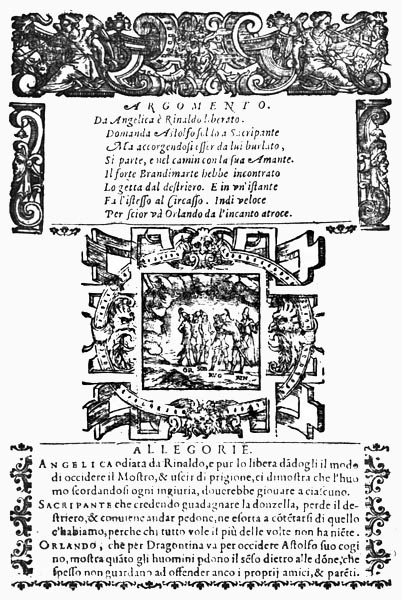 ARGOMENTO.
Da Angelica è Rinaldo liberato.
Domanda Astolfo sol lo a Sacripante
Ma accorgendosi esser da lui burlato,
Si parte, e nel camin con la sua Amante.
Il forte Brandimarte hebbe incontrato
Lo getta dal destriero. E in vn'istante
Fa l'istesso al Circasso. Indi veloce
Per scior và Orlando da l'incanto atroce.
OR RUG
ALLEGORIE.
ANGELICA odiata da Rinaldo, e pur lo libera dãdogli il modo
di occidere il Mostro, & uscir di prigione, ci dimostra che l'huo
mo scordandosi ogni ingiuria, douerebbe giouare a ciascuno.
SACRIPANTE che credendo guadagnare la donzella, perde il de-
striero, & conuiene andar pedone, ne esorta a cõtẽtarsi di quello
c'habbiamo, perche chi tutto vole il più delle volte non ha niẽte.
ORLANDO, che per Dragontina va per occidere Astolfo suo cogi
no, mostra quãto gli huomini pdono il sẽso dietro alle dõne, che
spesso non guardano ad offender anco i proprij amici, & parẽti.